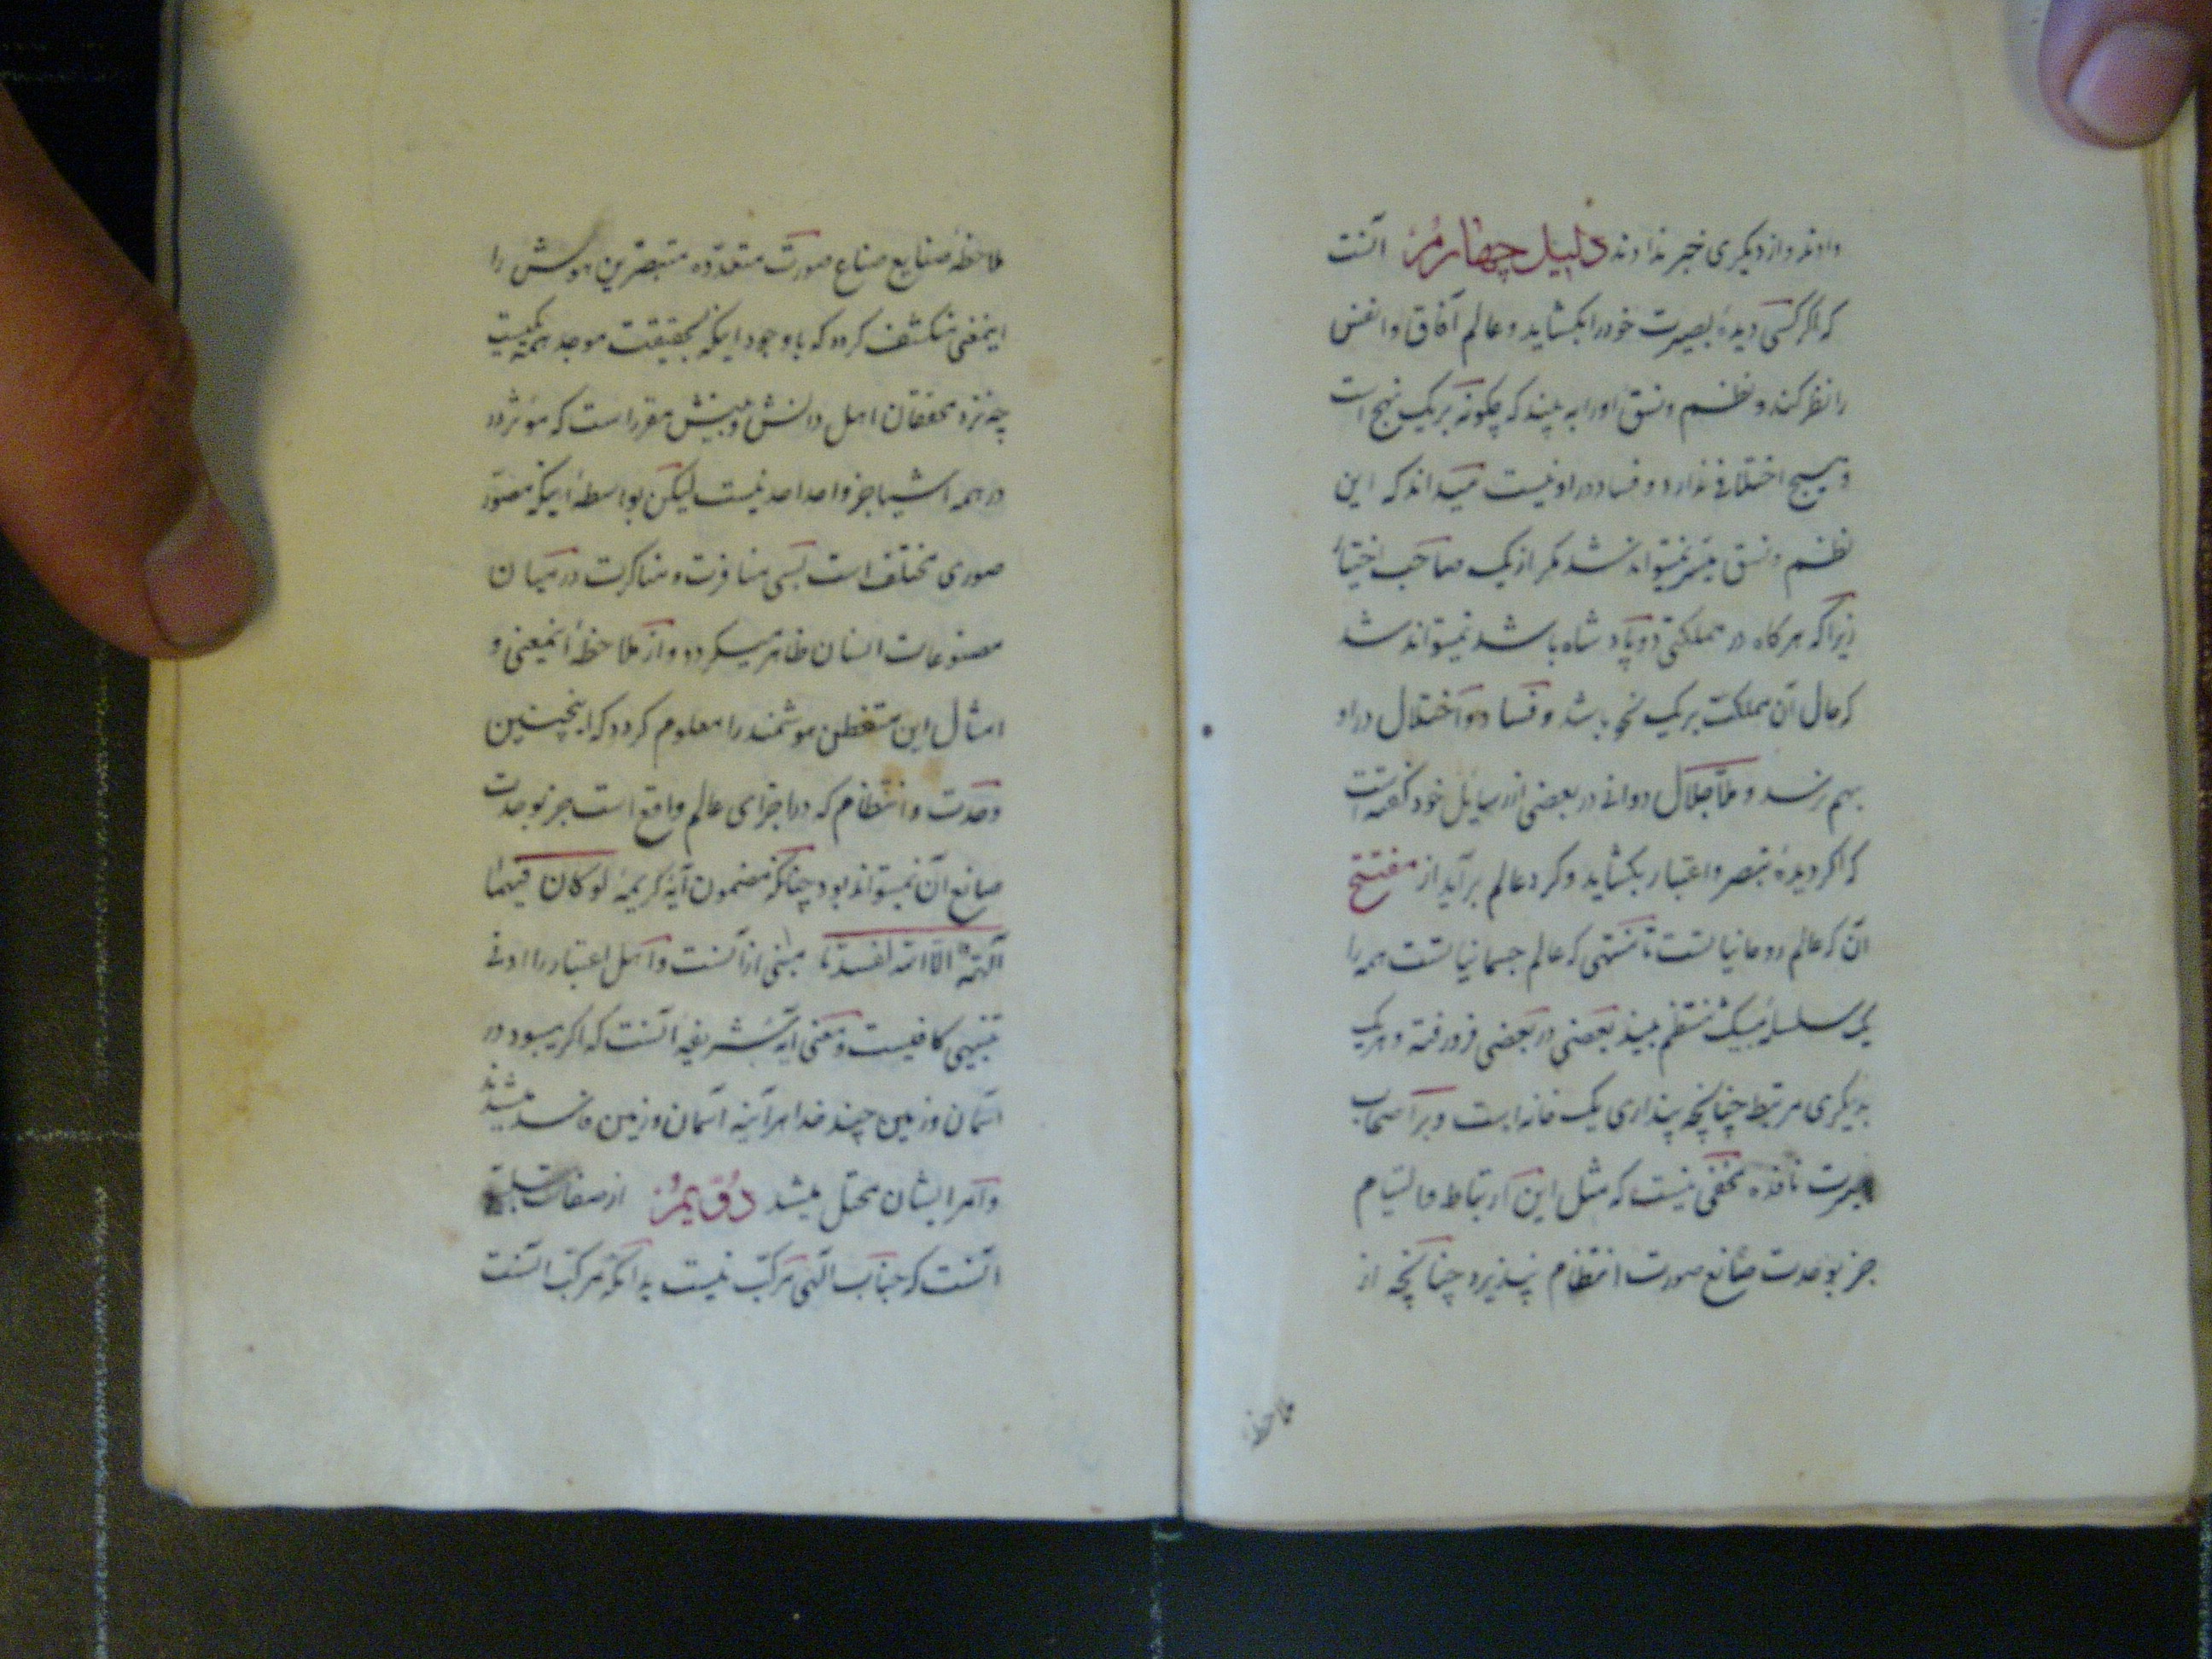 دادند و از دیکری خبر ندادند دلیل چهارم آنست
که اکر کسی دیدهٔ بصیرت خود را بکشاید و عالم آفاق و انفس
را نظر کند و نظم و نسق او را به بیند که چکونه بر یک نهج است
و هیچ اختلافی ندارد و فساد در او نیست میداند که این
نظم و نسق میسر نمیتواند شد مکر از یک صاحب اختیار
زیرا که هر کاه در مملکتی دو پادشاه باشد نمیتواند شد
که حال آن مملکت بر یک نحو باشد و فساد و اختلال در او
بهم نرسد و ملا جلال دوانی در بعضی از رسایل خود کفته است
که اکر دیدهٔ تبصر و اعتبار بکشاید و کرد عالم برآید از مفتتح
آن که عالم روحانیانست تا منتهی که عالم جسمانیانست همه را
یک سلسلهٔ منتظم بیند بعضی در بعضی فرو رفته و هر یک
بدیکری مرتبط چنانچه پنداری یک خانه است و بر اصحاب
بصیرت نافذه مخفی نیست که مثل این ارتباط و التیام
جز بوحدت صانع صورت انتظام نپذیرد چنانچه از
ملاحظه
ملاحظهٔ صنایع صناع صورت متعدده متبصرین هوش را
اینمعنی منکشف کردد که با وجود اینکه بحقیقت موجد همه یکیست
چه نزد محققان اهل دانش و بینش مقرر است که مؤثر
در همه اشیا جز واحد احد نیست لیکن بواسطهٔ اینکه مصور
صوری مختلف است بسی منافرت و مناکرت در میان
مصنوعات انسان ظاهر میکردد و از ملاحظهٔ اینمعنی و
امثال این متفطن هوشمند را معلوم کردد که اینچنین
وحدت و انتظام که در اجزای عالم واقع است جز بوحدت
صانع آن نمیتواند بود چنانکه مضمون آیهٔ کریمهٔ لو کان فیهما
آلهة الا الله لفسدتا مبنی از آنست و اهل اعتبار را ادنی
تنبیهی کافیست و معنی آیهٔ شریفه آنست که اکر میبود در
آسمان و زمین چند خدا هر آینه آسمان و زمین فاسد میشدند
و امر ایشان مختل میشد دویم از صفات سلبیه
آنست که جناب الهی مرکب نیست بدانکه مرکب آنست